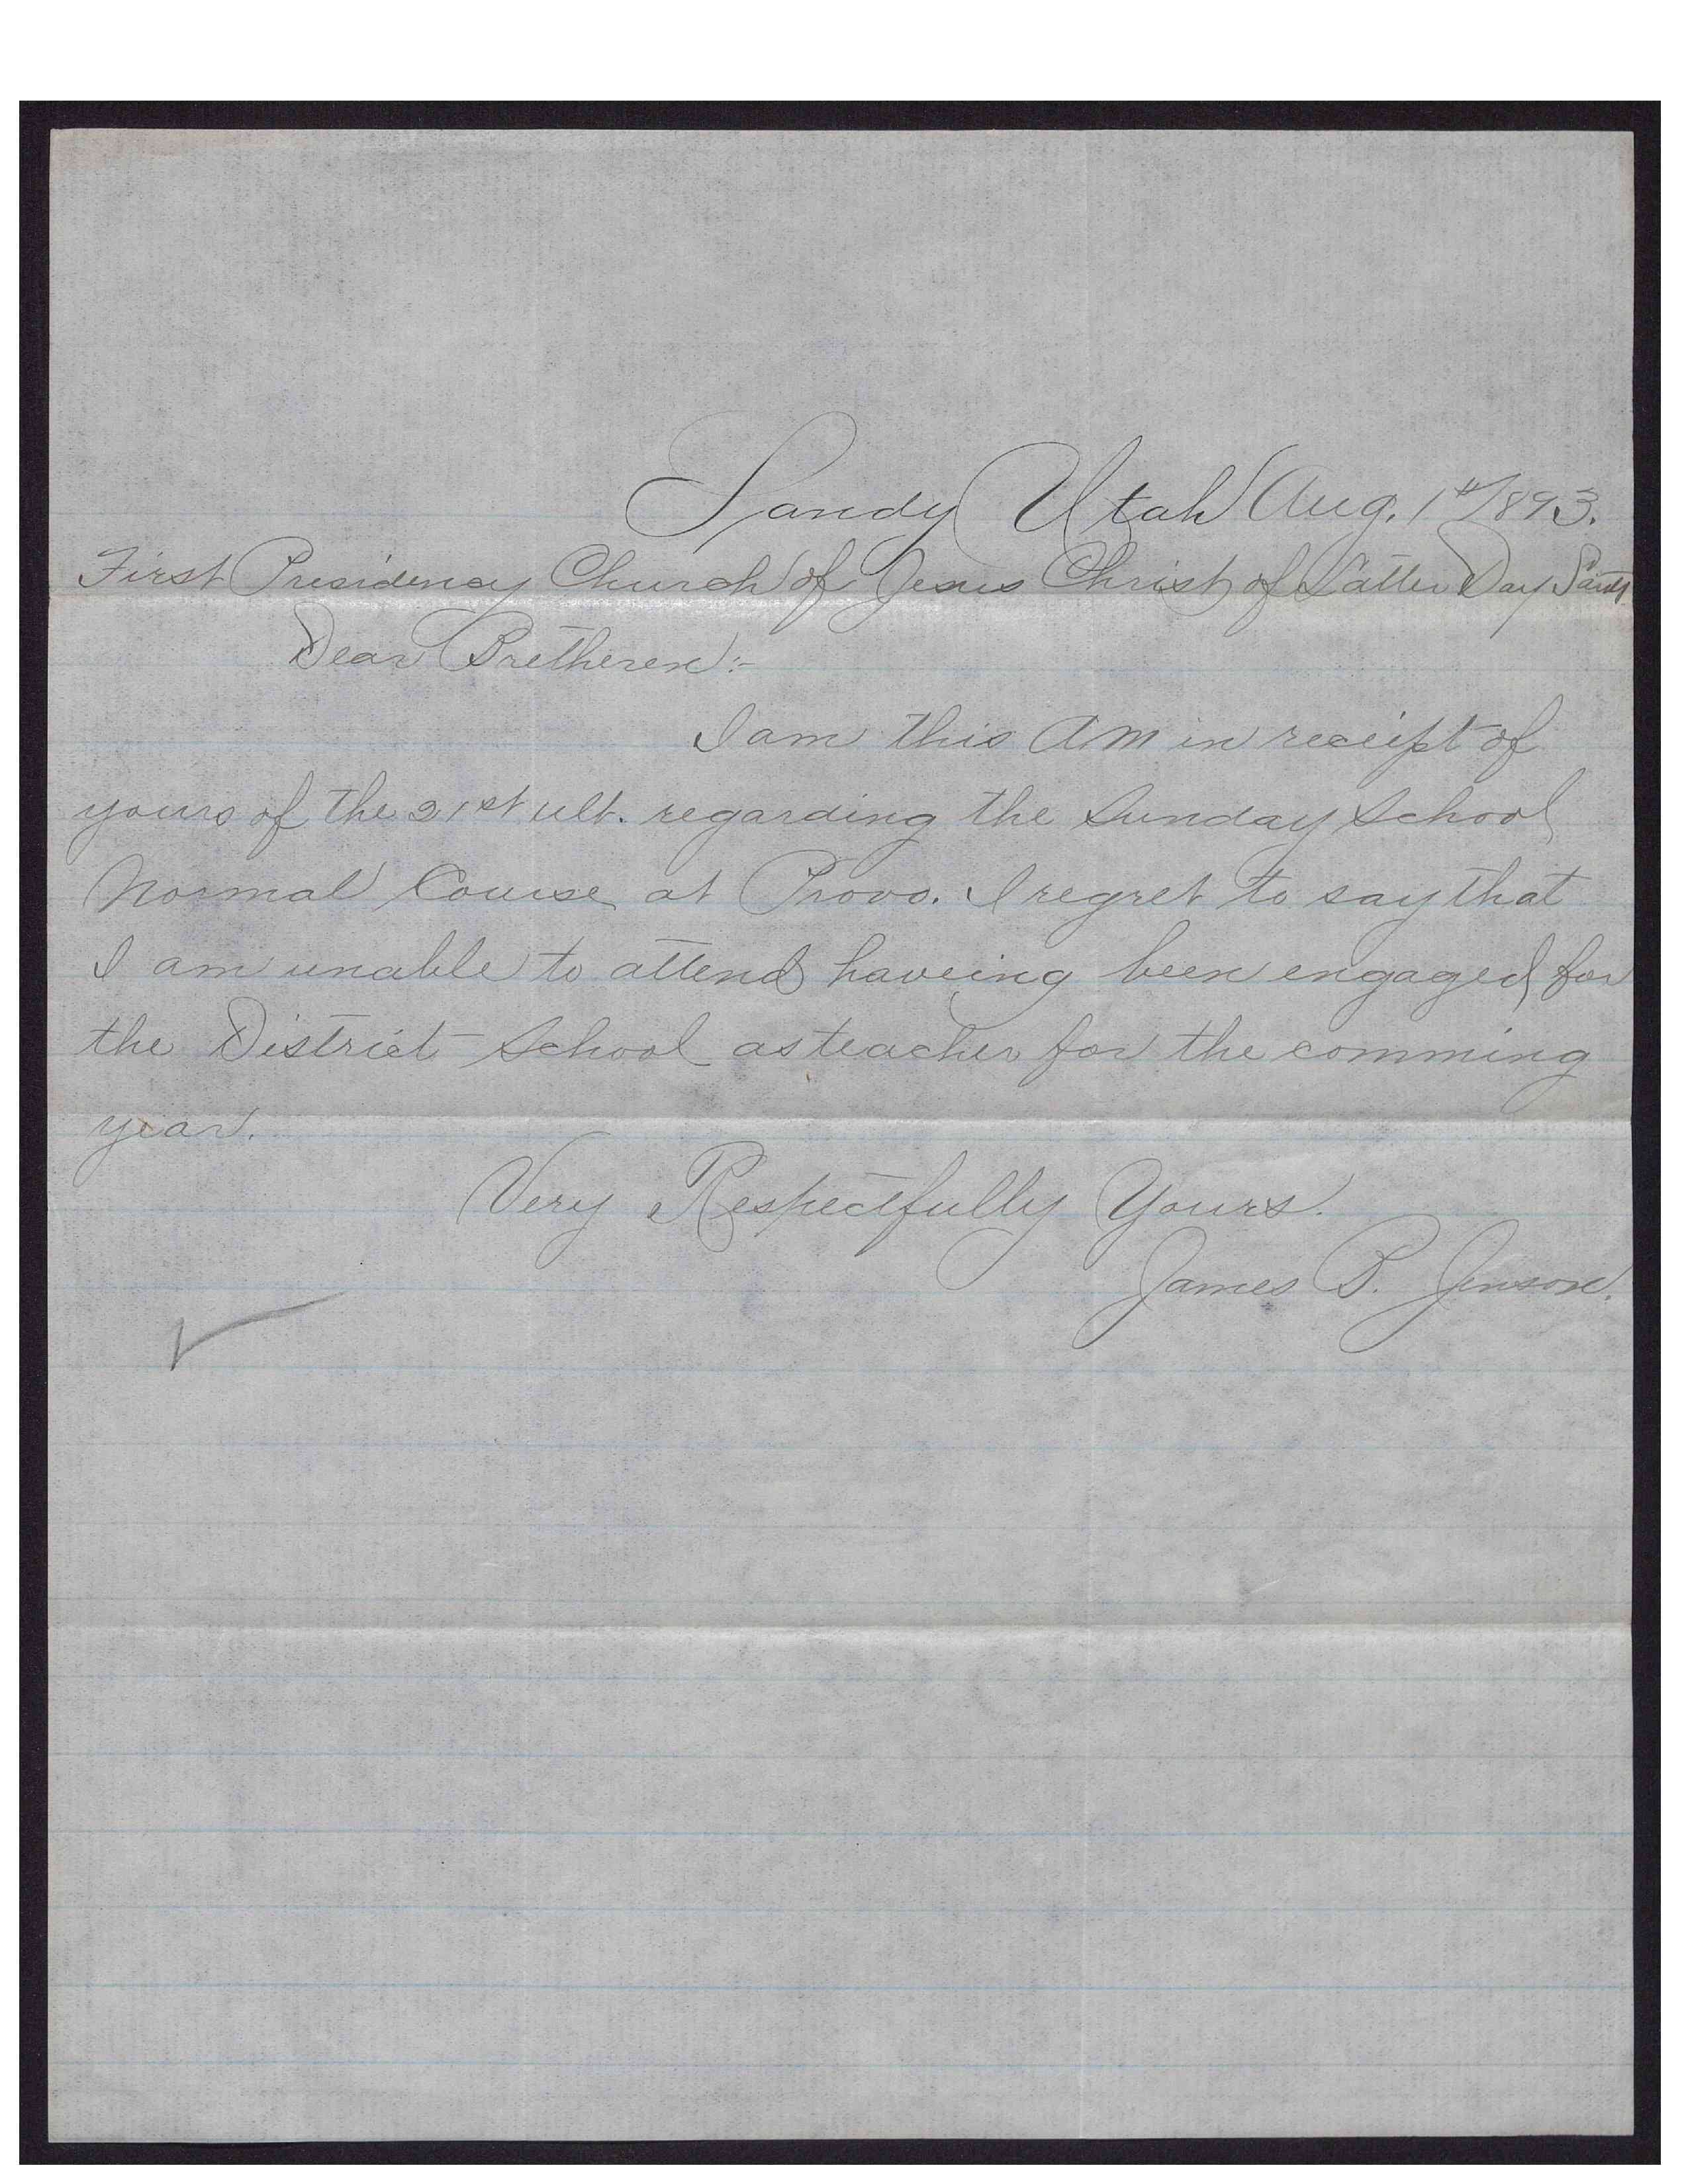 Sandy Utah Aug. 1st/1893.
First Presidency Church of Jesus Christ of Latter Day Saints
Dear Bretheren:-
I am this AM in receipt of
yours of the 21st ult. regarding the Sunday School
Normal Course at Provo. I regret to say that
I am unable to attend haveing been engaged for
the District School as teacher for the comming
year.
Very Respectfully Yours.
James P. Jenson.